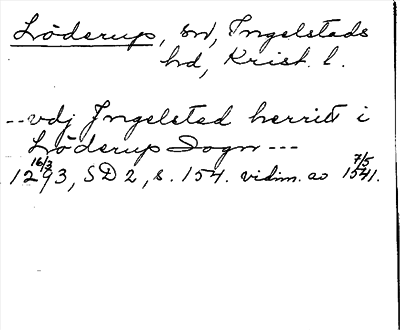 Löderup, sn, Ingelstads
hd, Krist. l.
--vdj Ingelsted herritt i
Löderup Sogn ---
12 16/3 93, SD 2, s. 154. vidim. av 7/5 1541.